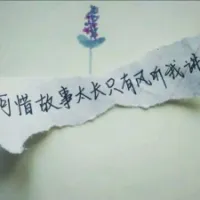 可惜故事太长只有风听我